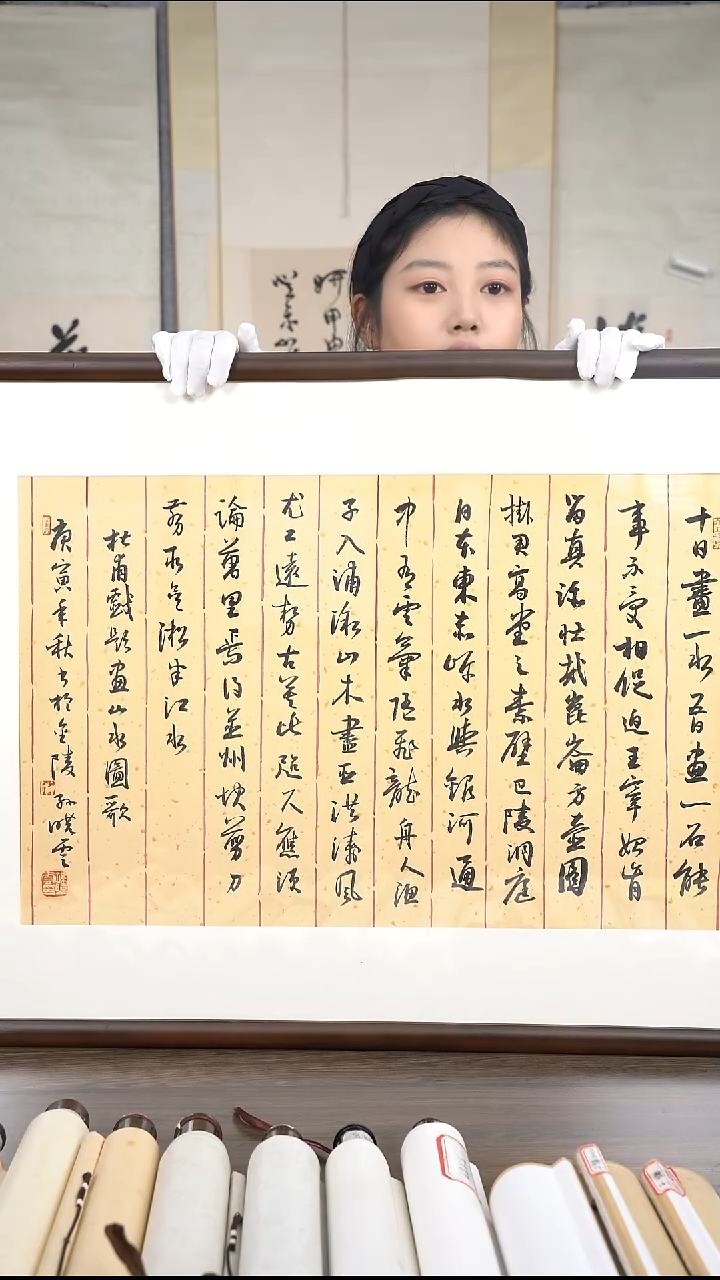 十日畫一水五日画一石能
事不受相促迫王宰始肯
留真跡壯哉崑崙方壺圖
掛君高堂之素壁巴陵洞庭
日本東赤岸水與銀河通
中有雲氣隨飛龍舟人漁
子入浦漵山木盡亞洪濤風
尤工遠勢古莫比咫尺應須
論萬里焉得並州快剪刀
剪取吳淞半江水
杜甫戲題画山水圖歌
庚寅年秋書於金陵孫曉雲